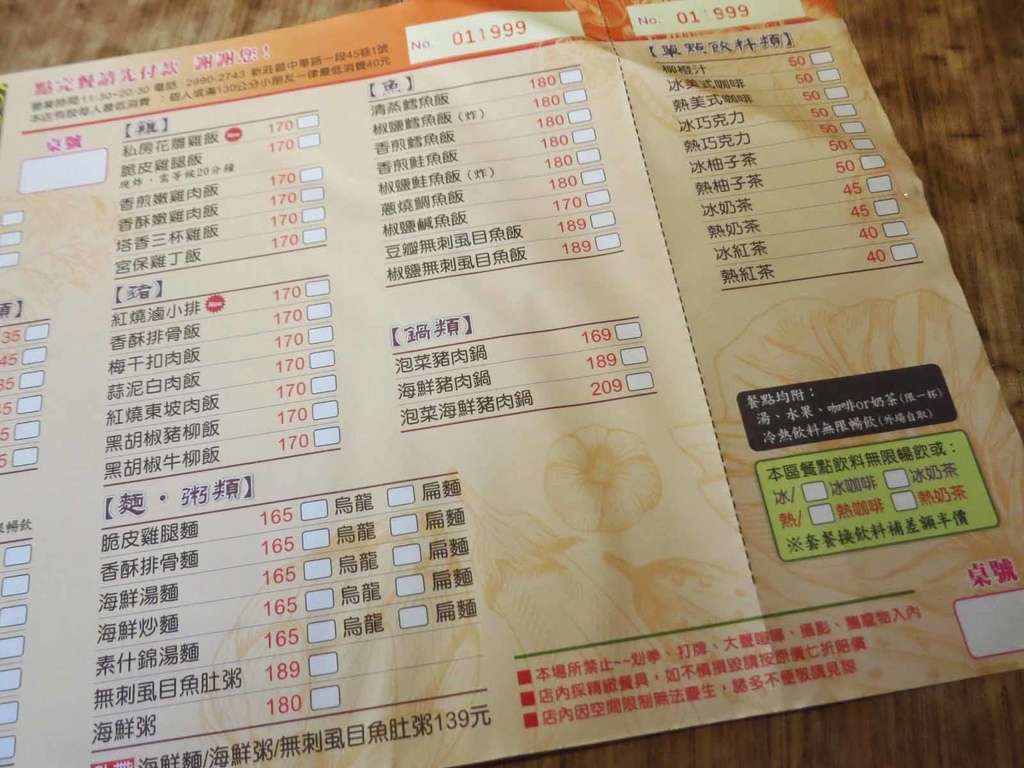 點完餐請先付款 謝謝您!
營業時間11:30~20:30 電話 2990-2743 新莊區中華路一段45巷1號
本店特設每人最低消費:個人或滿130公分小朋友一律最低消費40元
No. 011999
No. 011999
桌號
【雞】
私房花雕雞飯 New 170
脆皮雞腿飯 170
現炸，需等候20分鐘
香煎嫩雞肉飯 170
香酥嫩雞肉飯 170
塔香三杯雞飯 170
宮保雞丁飯 170
【豬】
紅燒滷小排 New 170
香酥排骨飯 170
梅干扣肉飯 170
蒜泥白肉飯 170
紅燒東坡肉飯 170
黑胡椒豬柳飯 170
黑胡椒牛柳飯 170
【麵・粥類】
脆皮雞腿麵 165 烏龍 扁麵
香酥排骨麵 165 烏龍 扁麵
海鮮湯麵 165 烏龍 扁麵
海鮮炒麵 165 烏龍 扁麵
素什錦湯麵 165 烏龍 扁麵
無刺虱目魚肚粥 189
海鮮粥 180
海鮮麵/海鮮粥/無刺虱目魚肚粥139元
【魚】
清蒸鱈魚飯 180
椒鹽鱈魚飯(炸) 180
香煎鱈魚飯 180
香煎鮭魚飯 180
椒鹽鮭魚飯(炸) 180
蔥燒鯛魚飯 180
椒鹽鹹魚飯 170
豆瓣無刺虱目魚飯 189
椒鹽無刺虱目魚飯 189
【鍋類】
泡菜豬肉鍋 169
海鮮豬肉鍋 189
泡菜海鮮豬肉鍋 209
【單點飲料類】
柳橙汁 50
冰美式咖啡 50
熱美式咖啡 50
冰巧克力 50
熱巧克力 50
冰柚子茶 50
熱柚子茶 50
冰奶茶 45
熱奶茶 45
冰紅茶 40
熱紅茶 40
餐點均附:
湯、水果、咖啡or奶茶(限一杯)
冷熱飲料無限暢飲(外場自取)
本區餐點飲料無限暢飲或:
冰/ 冰咖啡 冰奶茶
熱/ 熱咖啡 熱奶茶
※套餐換飲料補差額半價
桌號
■本場所禁止~~划拳、打牌、大聲喧嘩、攝影、攜寵物入內
■店內採精緻餐具，如不慎損毀請按原價七折賠償
■店內因空間限制無法慶生，諸多不便敬請見諒
類】
35
45
35
暢飲